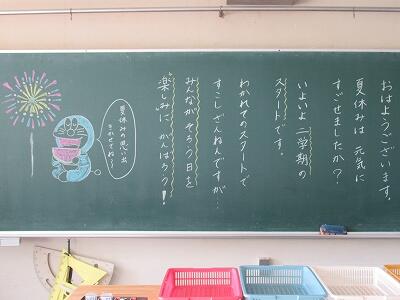 おはようございます。
夏休みは 元気に
すごせましたか?
いよいよ 二学期の
スタートです。
わかれてのスタートで
すこしざんねんですが…
みんながそろう日を
"楽しみに がんばろう!
夏休みの思い出
きかせてね!